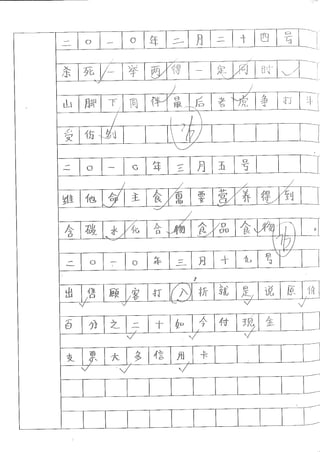 二〇一〇年二月二十四号
杀死一举两得一定同时
山脚下同伴最后老虎争打斗
受伤别
二〇一〇年三月五号
维他命主食需要营养得到
含碳水化合物食品食物。
二〇一〇年三月十九号
出售顾客打入折就是说原价
百分之二十如今付现金
支票大多信用卡